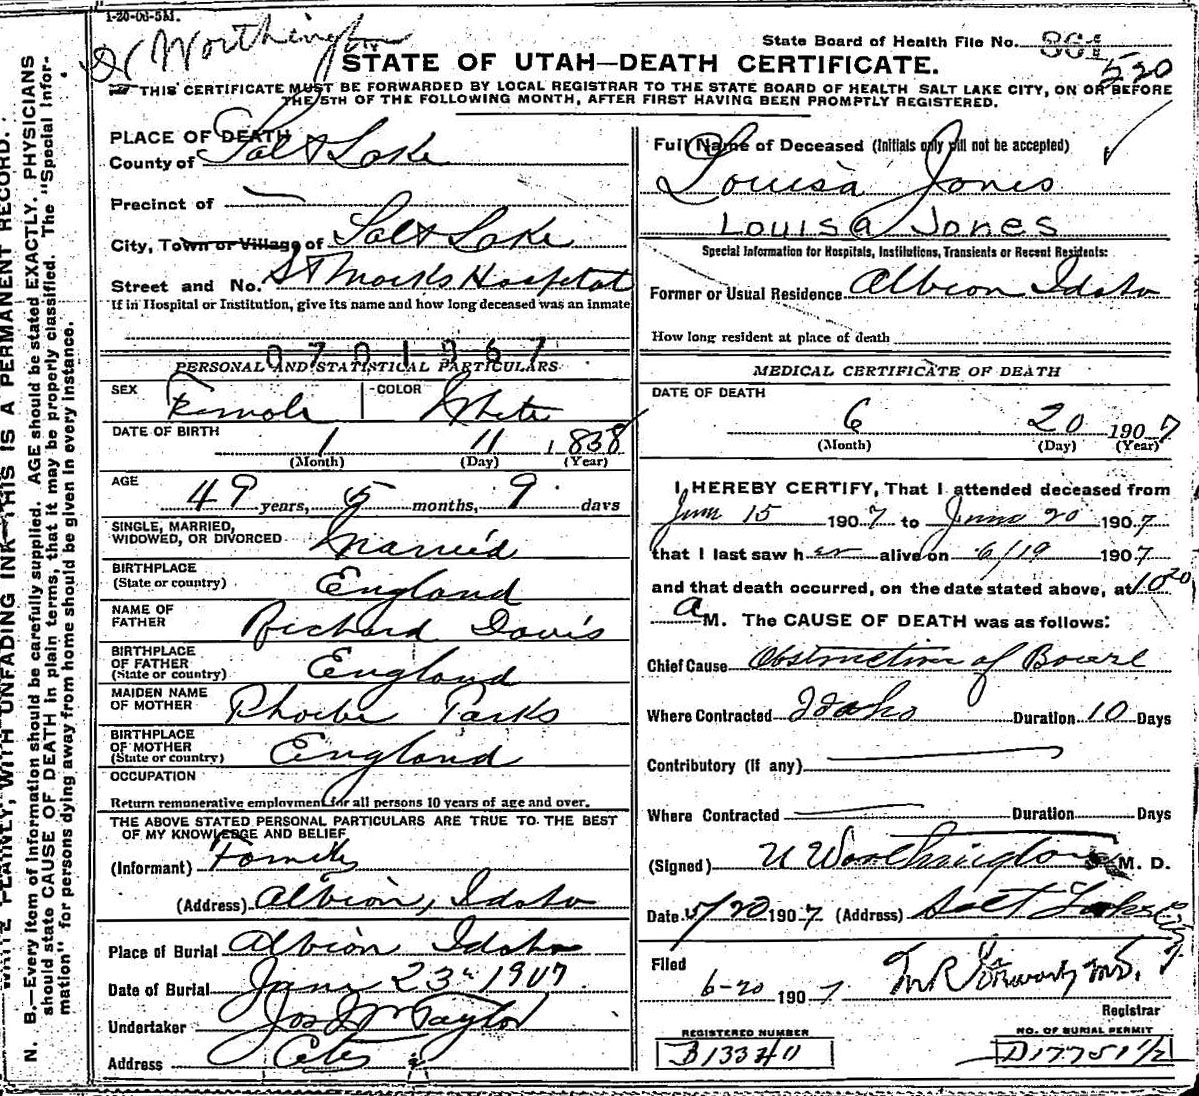 1-20-06-5M.
Dr Worthington
State Board of Health File No. 861
520
STATE OF UTAH—DEATH CERTIFICATE.
THIS CERTIFICATE MUST BE FORWARDED BY LOCAL REGISTRAR TO THE STATE BOARD OF HEALTH SALT LAKE CITY, ON OR BEFORE
THE 5TH OF THE FOLLOWING MONTH, AFTER FIRST HAVING BEEN PROMPTLY REGISTERED.
PLACE OF DEATH
County of Salt Lake
Precinct of —
City, Town or Village of Salt Lake
Street and No. St Marks Hospital
If in Hospital or Institution, give its name and how long deceased was an inmate
0701367
PERSONAL AND STATISTICAL PARTICULARS
SEX Female COLOR White
DATE OF BIRTH
1 11 1838
(Month) (Day) (Year)
AGE
49 years, 5 months, 9 days
SINGLE, MARRIED,
WIDOWED, OR DIVORCED Married
BIRTHPLACE
(State or country) England
NAME OF
FATHER Richard Davis
BIRTHPLACE
OF FATHER
(State or country) England
MAIDEN NAME
OF MOTHER Phoebe Parks
BIRTHPLACE
OF MOTHER
(State or country) England
OCCUPATION
Return remunerative employment for all persons 10 years of age and over.
THE ABOVE STATED PERSONAL PARTICULARS ARE TRUE TO THE BEST
OF MY KNOWLEDGE AND BELIEF
(Informant) Family
(Address) Albion, Idaho
Place of Burial Albion Idaho
Date of Burial June 23rd 1907
Undertaker Jos Wm Taylor
Address City
Full Name of Deceased (Initials only will not be accepted)
Louisa Jones
Louisa Jones
Special Information for Hospitals, Institutions, Transients or Recent Residents:
Former or Usual Residence Albion Idaho
How long resident at place of death
MEDICAL CERTIFICATE OF DEATH
DATE OF DEATH
6 20 1907
(Month) (Day) (Year)
I HEREBY CERTIFY, That I attended deceased from
June 15 1907 to June 20 1907
that I last saw her alive on 6/19 1907
and that death occurred, on the date stated above, at 10 20
a M. The CAUSE OF DEATH was as follows:
Chief Cause Obstruction of Bowel
Where Contracted Idaho Duration 10 Days
Contributory (if any) —
Where Contracted — Duration Days
(Signed) U Worthington M. D.
Date 5/20 1907 (Address) Salt Lake City
Filed
6-20 1907 M.R. Stewart MD.
Registrar
REGISTERED NUMBER
B13340
NO. OF BURIAL PERMIT
D17751 1/2
WRITE PLAINLY, WITH UNFADING INK—THIS IS A PERMANENT RECORD.
N. B.—Every item of information should be carefully supplied. AGE should be stated EXACTLY. PHYSICIANS
should state CAUSE OF DEATH in plain terms, that it may be properly classified. The "Special Infor-
mation" for persons dying away from home should be given in every instance.